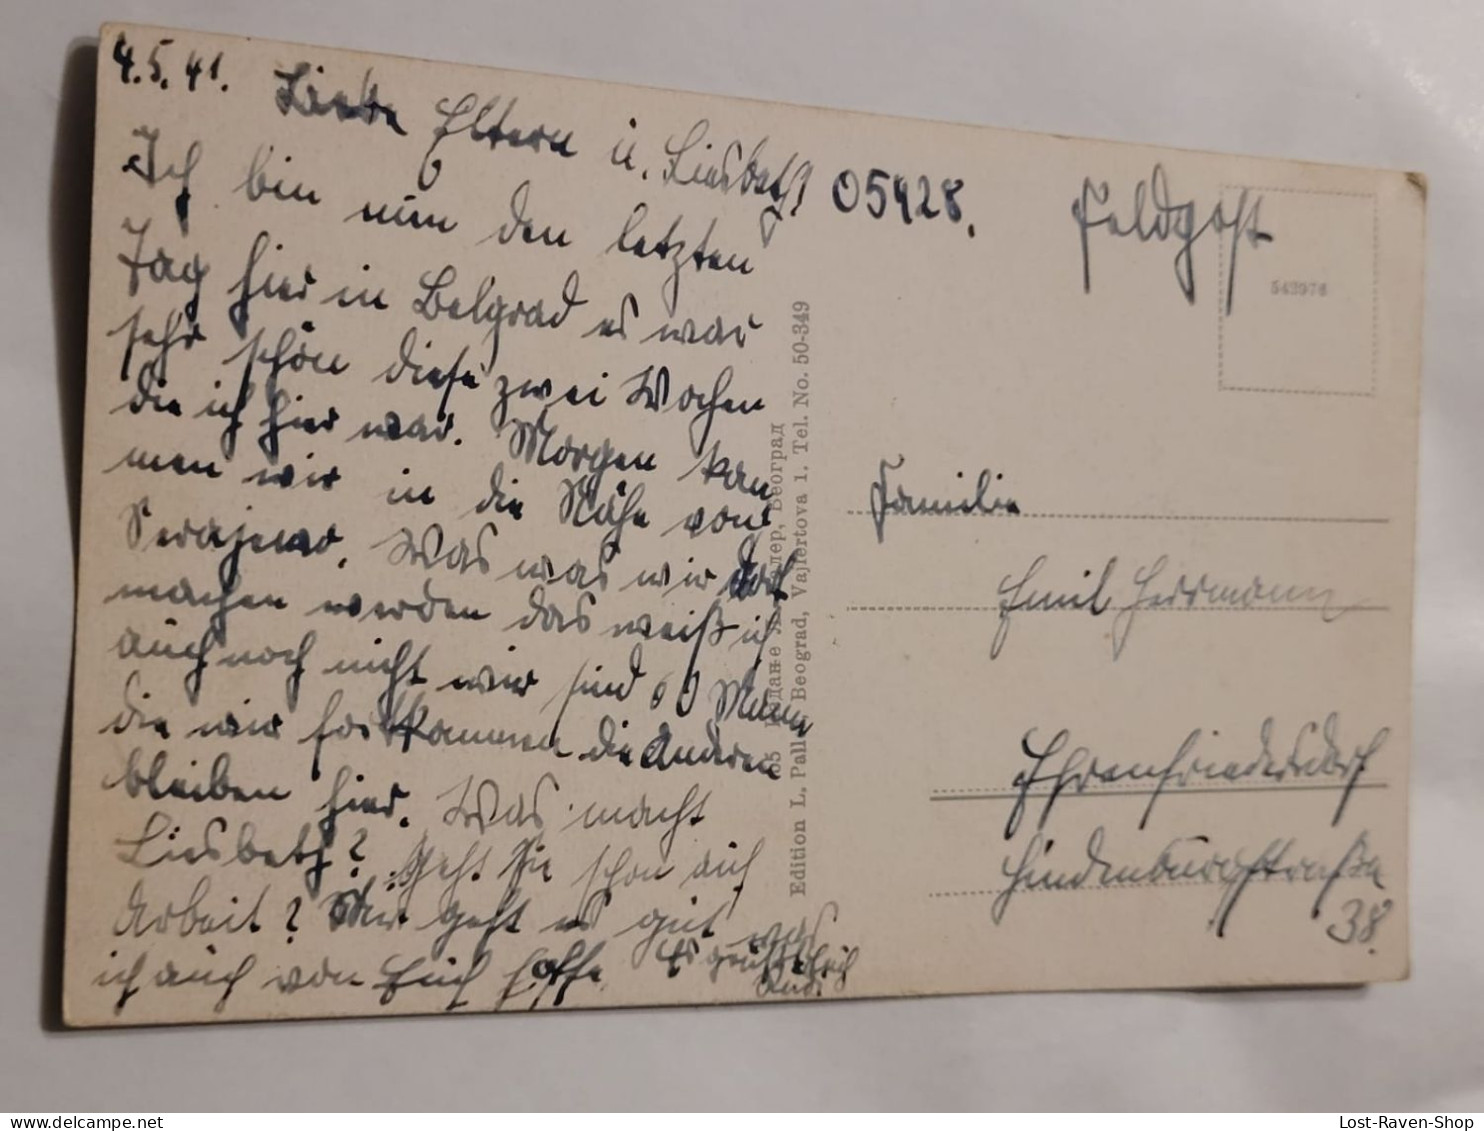 4.5.41.
Liebe Eltern u. Liesbeth!
Ich bin nun den letzten
Tag hier in Belgrad es war
sehr schön diese zwei Wochen
die ich hier war. Morgen kom
men wir in die Nähe von
Serajewo. Was was wir dort
machen werden das weiß ich
auch noch nicht wir sind 60 Mann
die wir fortkommen die anderen
bleiben hier. Was macht
Liesbeth? Geht sie schon auf
Arbeit? Mir geht es gut was
ich auch von Euch hoffe. Es grüßt Euch
Rudi
05428.
Feldpost
542976
Familie
Emil Herrmann
Ehrenfriedersdorf
Hindenburgstraße
38.
Београд
Edition L. Beograd, Vajfertova 1. Tel. No. 50-349
Lost-Raven-Shop